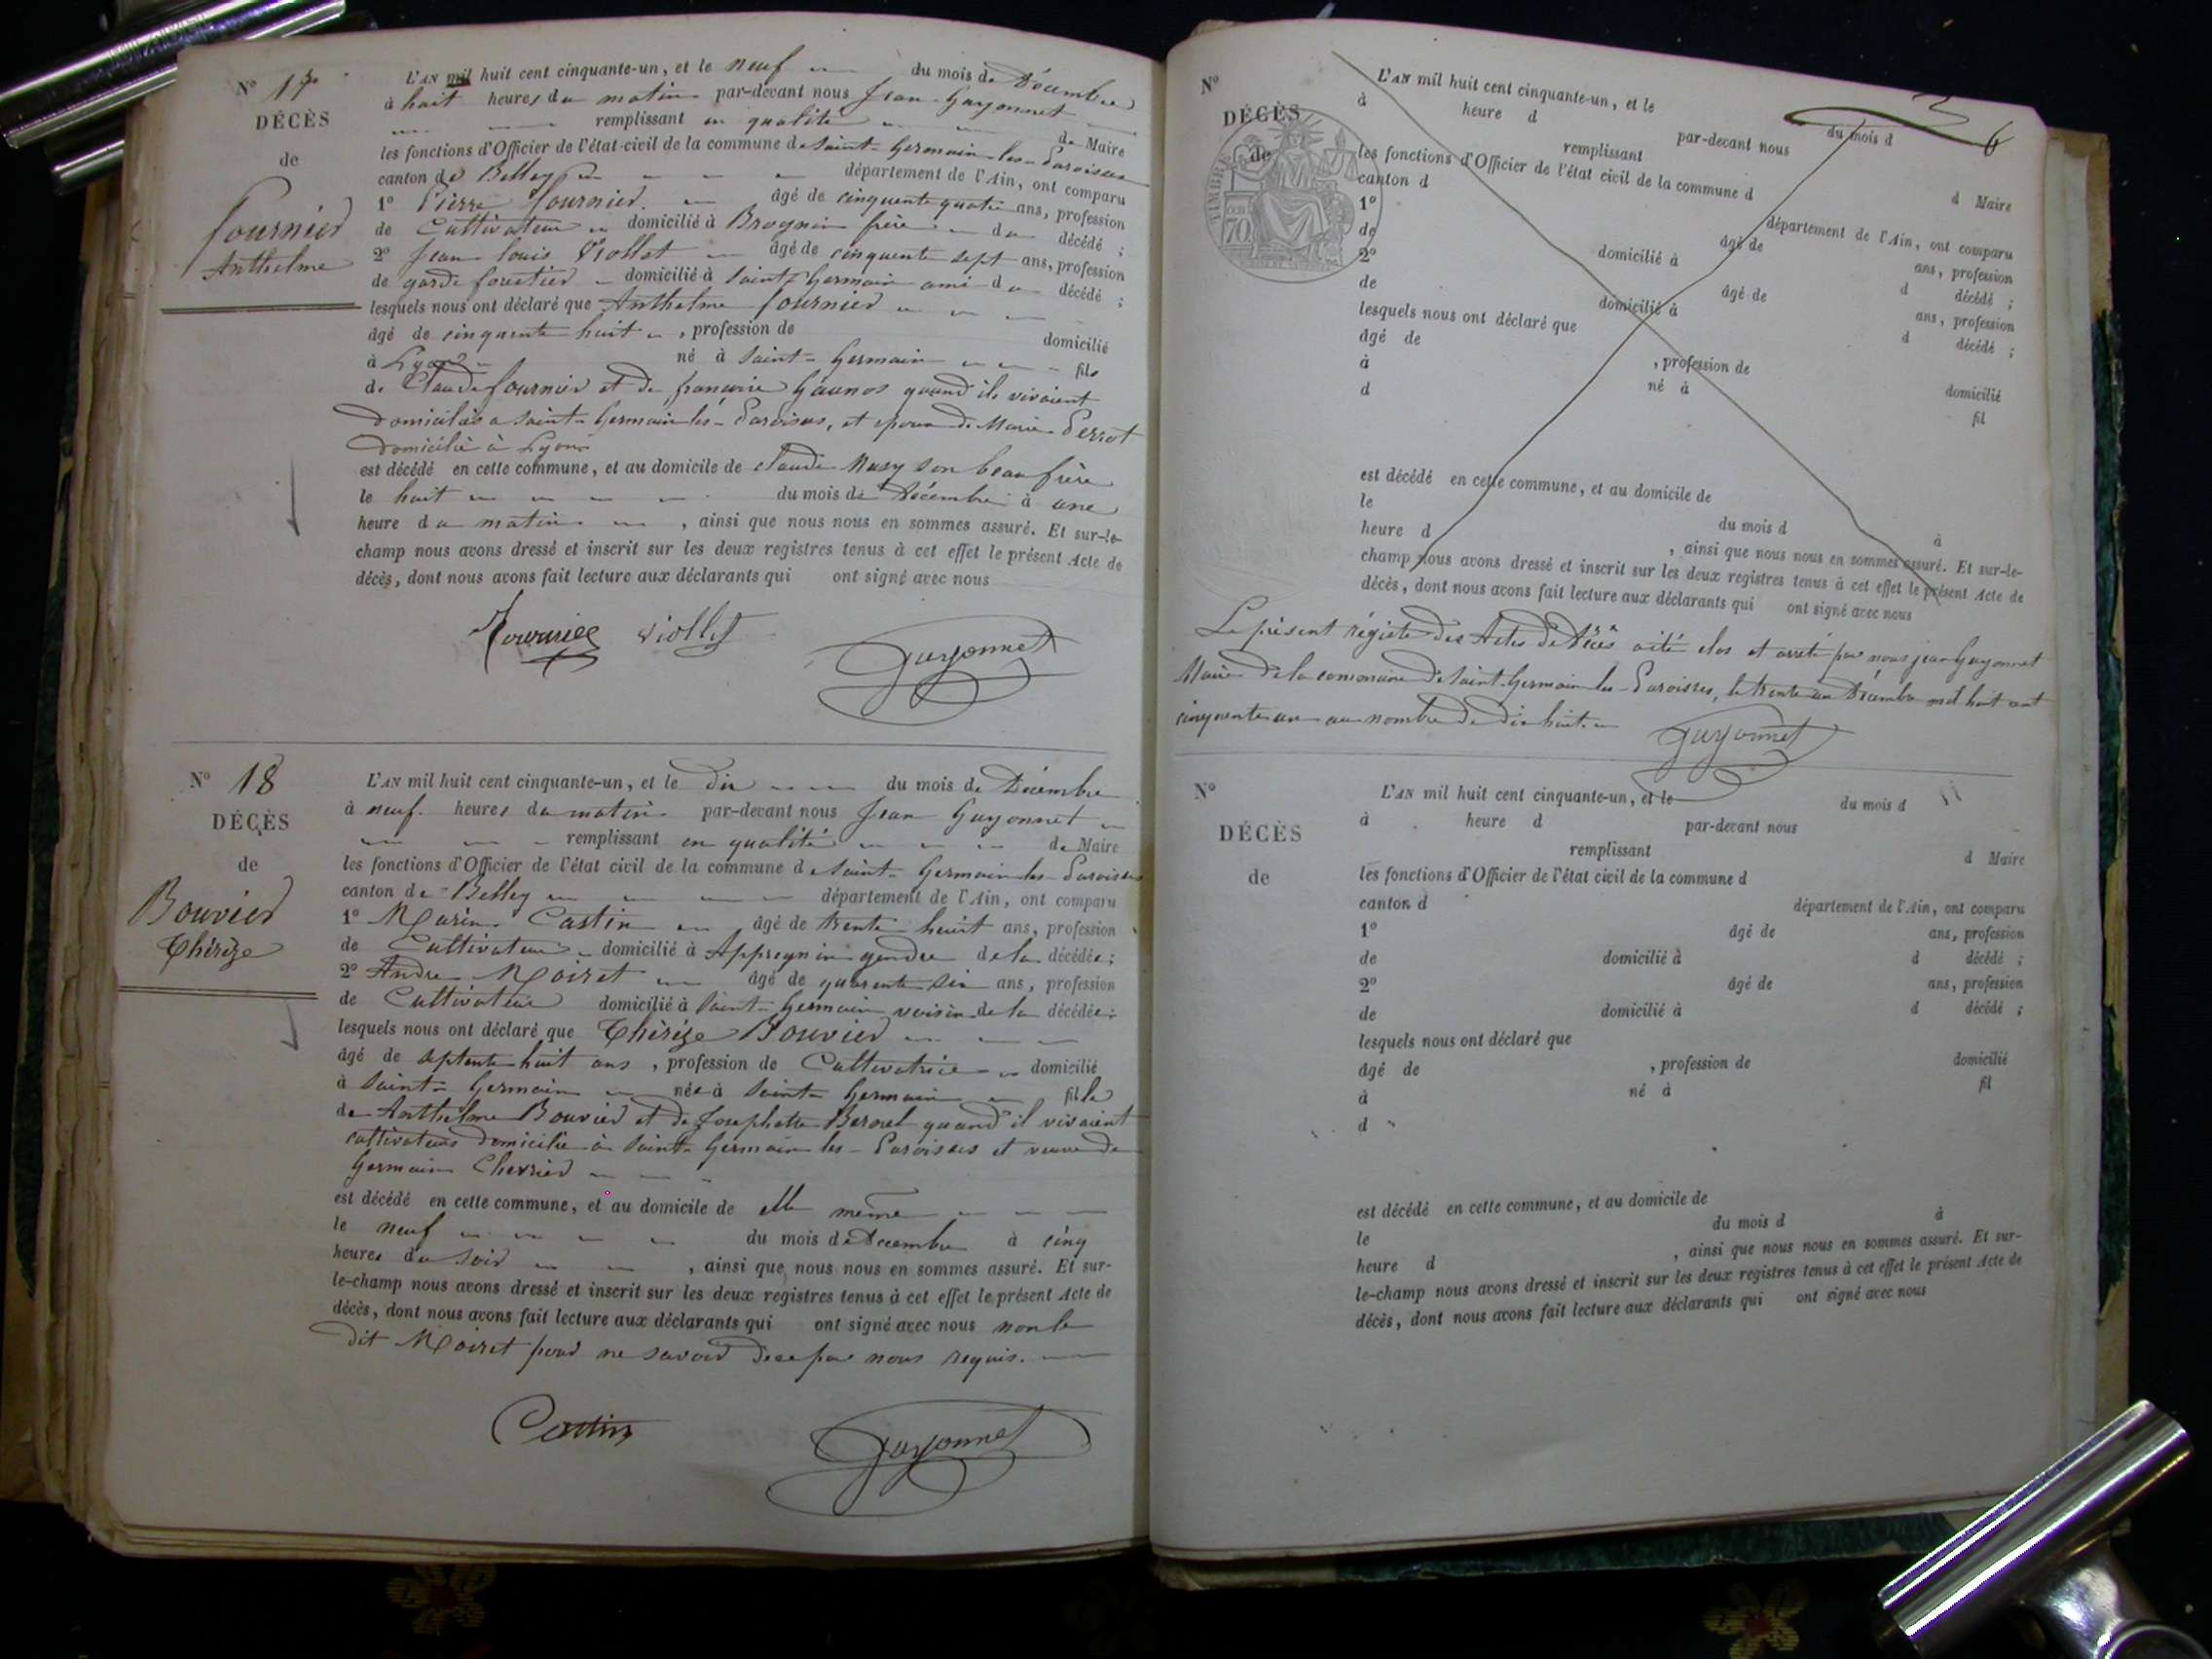 N° 17
DÉCÈS
de
Fournier
Anthelme
L'AN mil huit cent cinquante-un, et le neuf du mois de Décembre
à huit heures du matin par-devant nous Jean Guyonnet
remplissant en qualité de Maire
les fonctions d'Officier de l'état-civil de la commune de Saint-Germain-les-Paroisses
canton de Belley département de l'Ain, ont comparu
1° Pierre Fournier âgé de cinquante quatre ans, profession
de Cultivateur domicilié à Brognin frère du décédé ;
2° Jean louis Viollet âgé de cinquante sept ans, profession
de garde forestier domicilié à Saint Germain ami du décédé ;
lesquels nous ont déclaré que Anthelme Fournier
âgé de cinquante huit , profession de domicilié
à Lyon né à Saint-Germain fils
de Claude fournier et de françoise quand ils vivaient
Domiciliés a Saint-Germain-les-Paroisses, et epoux de Marie Perrot
Domicilié à Lyon
est décédé en cette commune, et au domicile de Claude Musy son beau frère
le huit du mois de Décembre à une
heure du matin , ainsi que nous nous en sommes assuré. Et sur-le-
champ nous avons dressé et inscrit sur les deux registres tenus à cet effet le présent Acte de
décès, dont nous avons fait lecture aux déclarants qui ont signé avec nous
Fournier Viollet
Guyonnet
N° 18
DÉCÈS
de
Bouvier
Thérèze
L'AN mil huit cent cinquante-un, et le dix du mois de Décembre
à neuf heures du matin par-devant nous Jean Guyonnet
remplissant en qualité de Maire
les fonctions d'Officier de l'état civil de la commune de Saint-Germain-les-Paroisses
canton de Belley département de l'Ain, ont comparu
1° Marin Castin âgé de trente huit ans, profession
de Cultivateur domicilié à Appregnin gendre de la décédée ;
2° Andre Moiret âgé de quarente six ans, profession
de Cultivateur domicilié à Saint-Germain voisin de la décédée ;
lesquels nous ont déclaré que Thérèze Bouvier
âgé de septente huit ans , profession de Cultivatrice domicilié
à Saint-Germain née à Saint-Germain fille
de Anthelme Bouvier et de Josephette quand il vivaient
cultivateurs domicilié à Saint-Germain les-Paroisses et veuve de
Germain Chevrier
est décédé en cette commune, et au domicile de elle même
le neuf du mois de Décembre à cinq
heures du soir , ainsi que nous nous en sommes assuré. Et sur-
le-champ nous avons dressé et inscrit sur les deux registres tenus à cet effet le présent Acte de
décès, dont nous avons fait lecture aux déclarants qui ont signé avec nous non le
dit Moiret pour ne savoir de ce par nous requis.
Castin
Guyonnet
N°
DÉCÈS
de
TIMBRE
70
L'AN mil huit cent cinquante-un, et le du mois d
à heure d par-devant nous
remplissant d Maire
les fonctions d'Officier de l'état civil de la commune d
canton d département de l'Ain, ont comparu
1° âgé de ans, profession
de domicilié à d décédé ;
2° âgé de ans, profession
de domicilié à d décédé ;
lesquels nous ont déclaré que
âgé de , profession de domicilié
à né à fil
d
est décédé en cette commune, et au domicile de
le du mois d à
heure d , ainsi que nous nous en sommes assuré. Et sur-le-
champ nous avons dressé et inscrit sur les deux registres tenus à cet effet le présent Acte de
décès, dont nous avons fait lecture aux déclarants qui ont signé avec nous
Le présent régistre des Actes de Décès a été clos et arreté par nous jean Guyonnet
Maire de la commune de Saint-Germain les-Paroisses, le trente un Décembre mil huit cent
cinquante un au nombre de dix huit.
Guyonnet
N°
DÉCÈS
de
L'AN mil huit cent cinquante-un, et le du mois d
à heure d par-devant nous
remplissant d Maire
les fonctions d'Officier de l'état civil de la commune d
canton d département de l'Ain, ont comparu
1° âgé de ans, profession
de domicilié à d décédé ;
2° âgé de ans, profession
de domicilié à d décédé ;
lesquels nous ont déclaré que
âgé de , profession de domicilié
à né à fil
d
est décédé en cette commune, et au domicile de
le du mois d à
heure d , ainsi que nous nous en sommes assuré. Et sur-
le-champ nous avons dressé et inscrit sur les deux registres tenus à cet effet le présent Acte de
décès, dont nous avons fait lecture aux déclarants qui ont signé avec nous